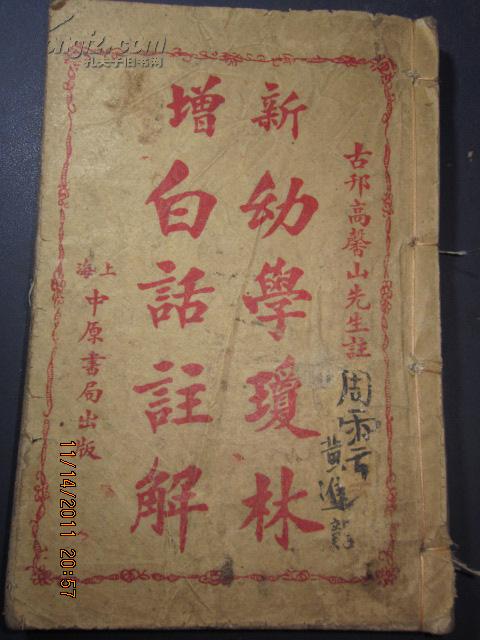 古邗高馨山先生註
新增
幼學瓊林
白話註解
上海
中原書局出版
周
黃進
孔夫子旧书网
11/14/2011 20:57